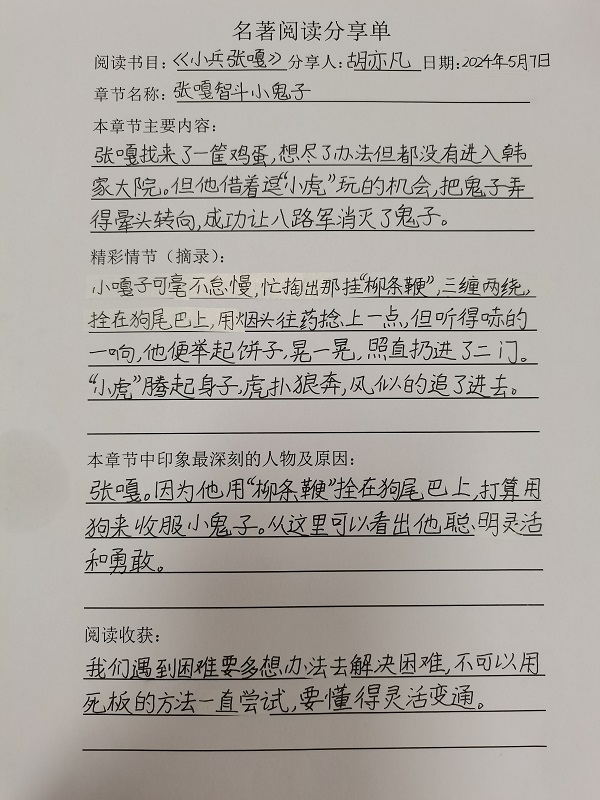 名著阅读分享单
阅读书目:《小兵张嘎》分享人:胡亦凡 日期:2024年5月7日
章节名称:张嘎智斗小鬼子
本章节主要内容:
张嘎找来了一筐鸡蛋,想尽了办法但都没有进入韩
家大院。但他借着逗“小虎”玩的机会,把鬼子弄
得晕头转向,成功让八路军消灭了鬼子。
精彩情节(摘录):
小嘎子可毫不怠慢,忙掏出那挂“柳条鞭”,三缠两绕,
拴在狗尾巴上,用烟头往药捻上一点,但听得哧的
一响,他便举起饼子,晃一晃,照直扔进了二门。
“小虎”腾起身子,虎扑狼奔,风似的追了进去。
本章节中印象最深刻的人物及原因:
张嘎。因为他用“柳条鞭”拴在狗尾巴上,打算用
狗来收服小鬼子。从这里可以看出他聪明灵活
和勇敢。
阅读收获:
我们遇到困难要多想办法去解决困难,不可以用
死板的方法一直尝试,要懂得灵活变通。